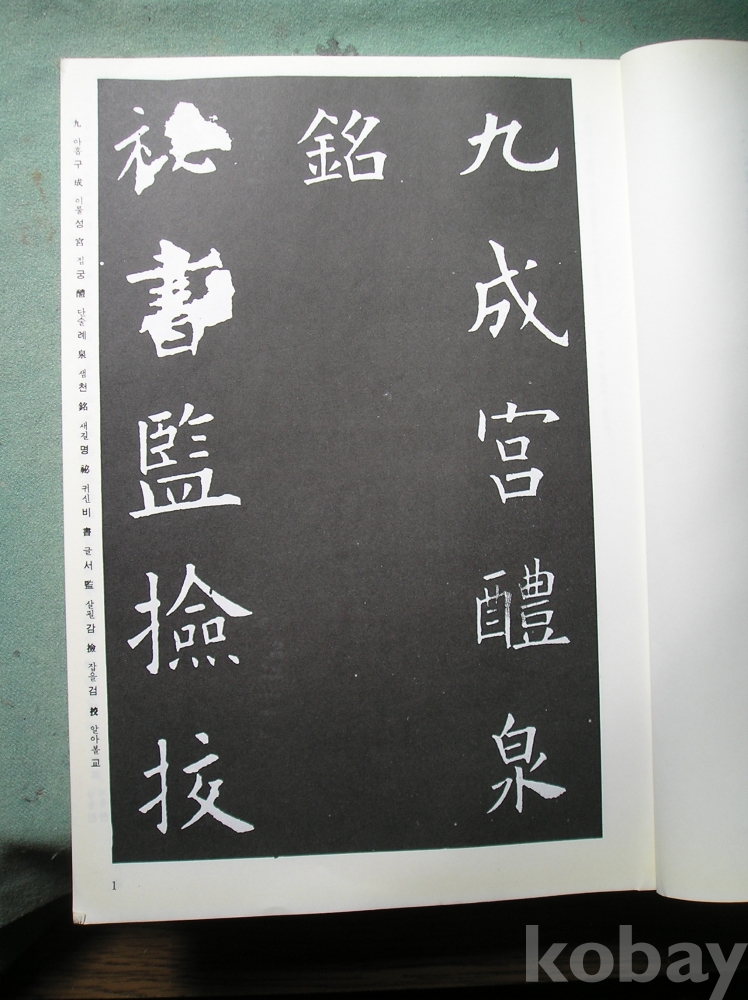 九成宮醴泉
銘
祕書監撿挍
九 아홉 구 成 이룰 성 宮 집 궁 醴 단술 례 泉 샘 천 銘 새길 명 祕 귀신 비 書 글 서 監 살필 감 撿 잡을 검 挍 알아볼 교
1
kobay